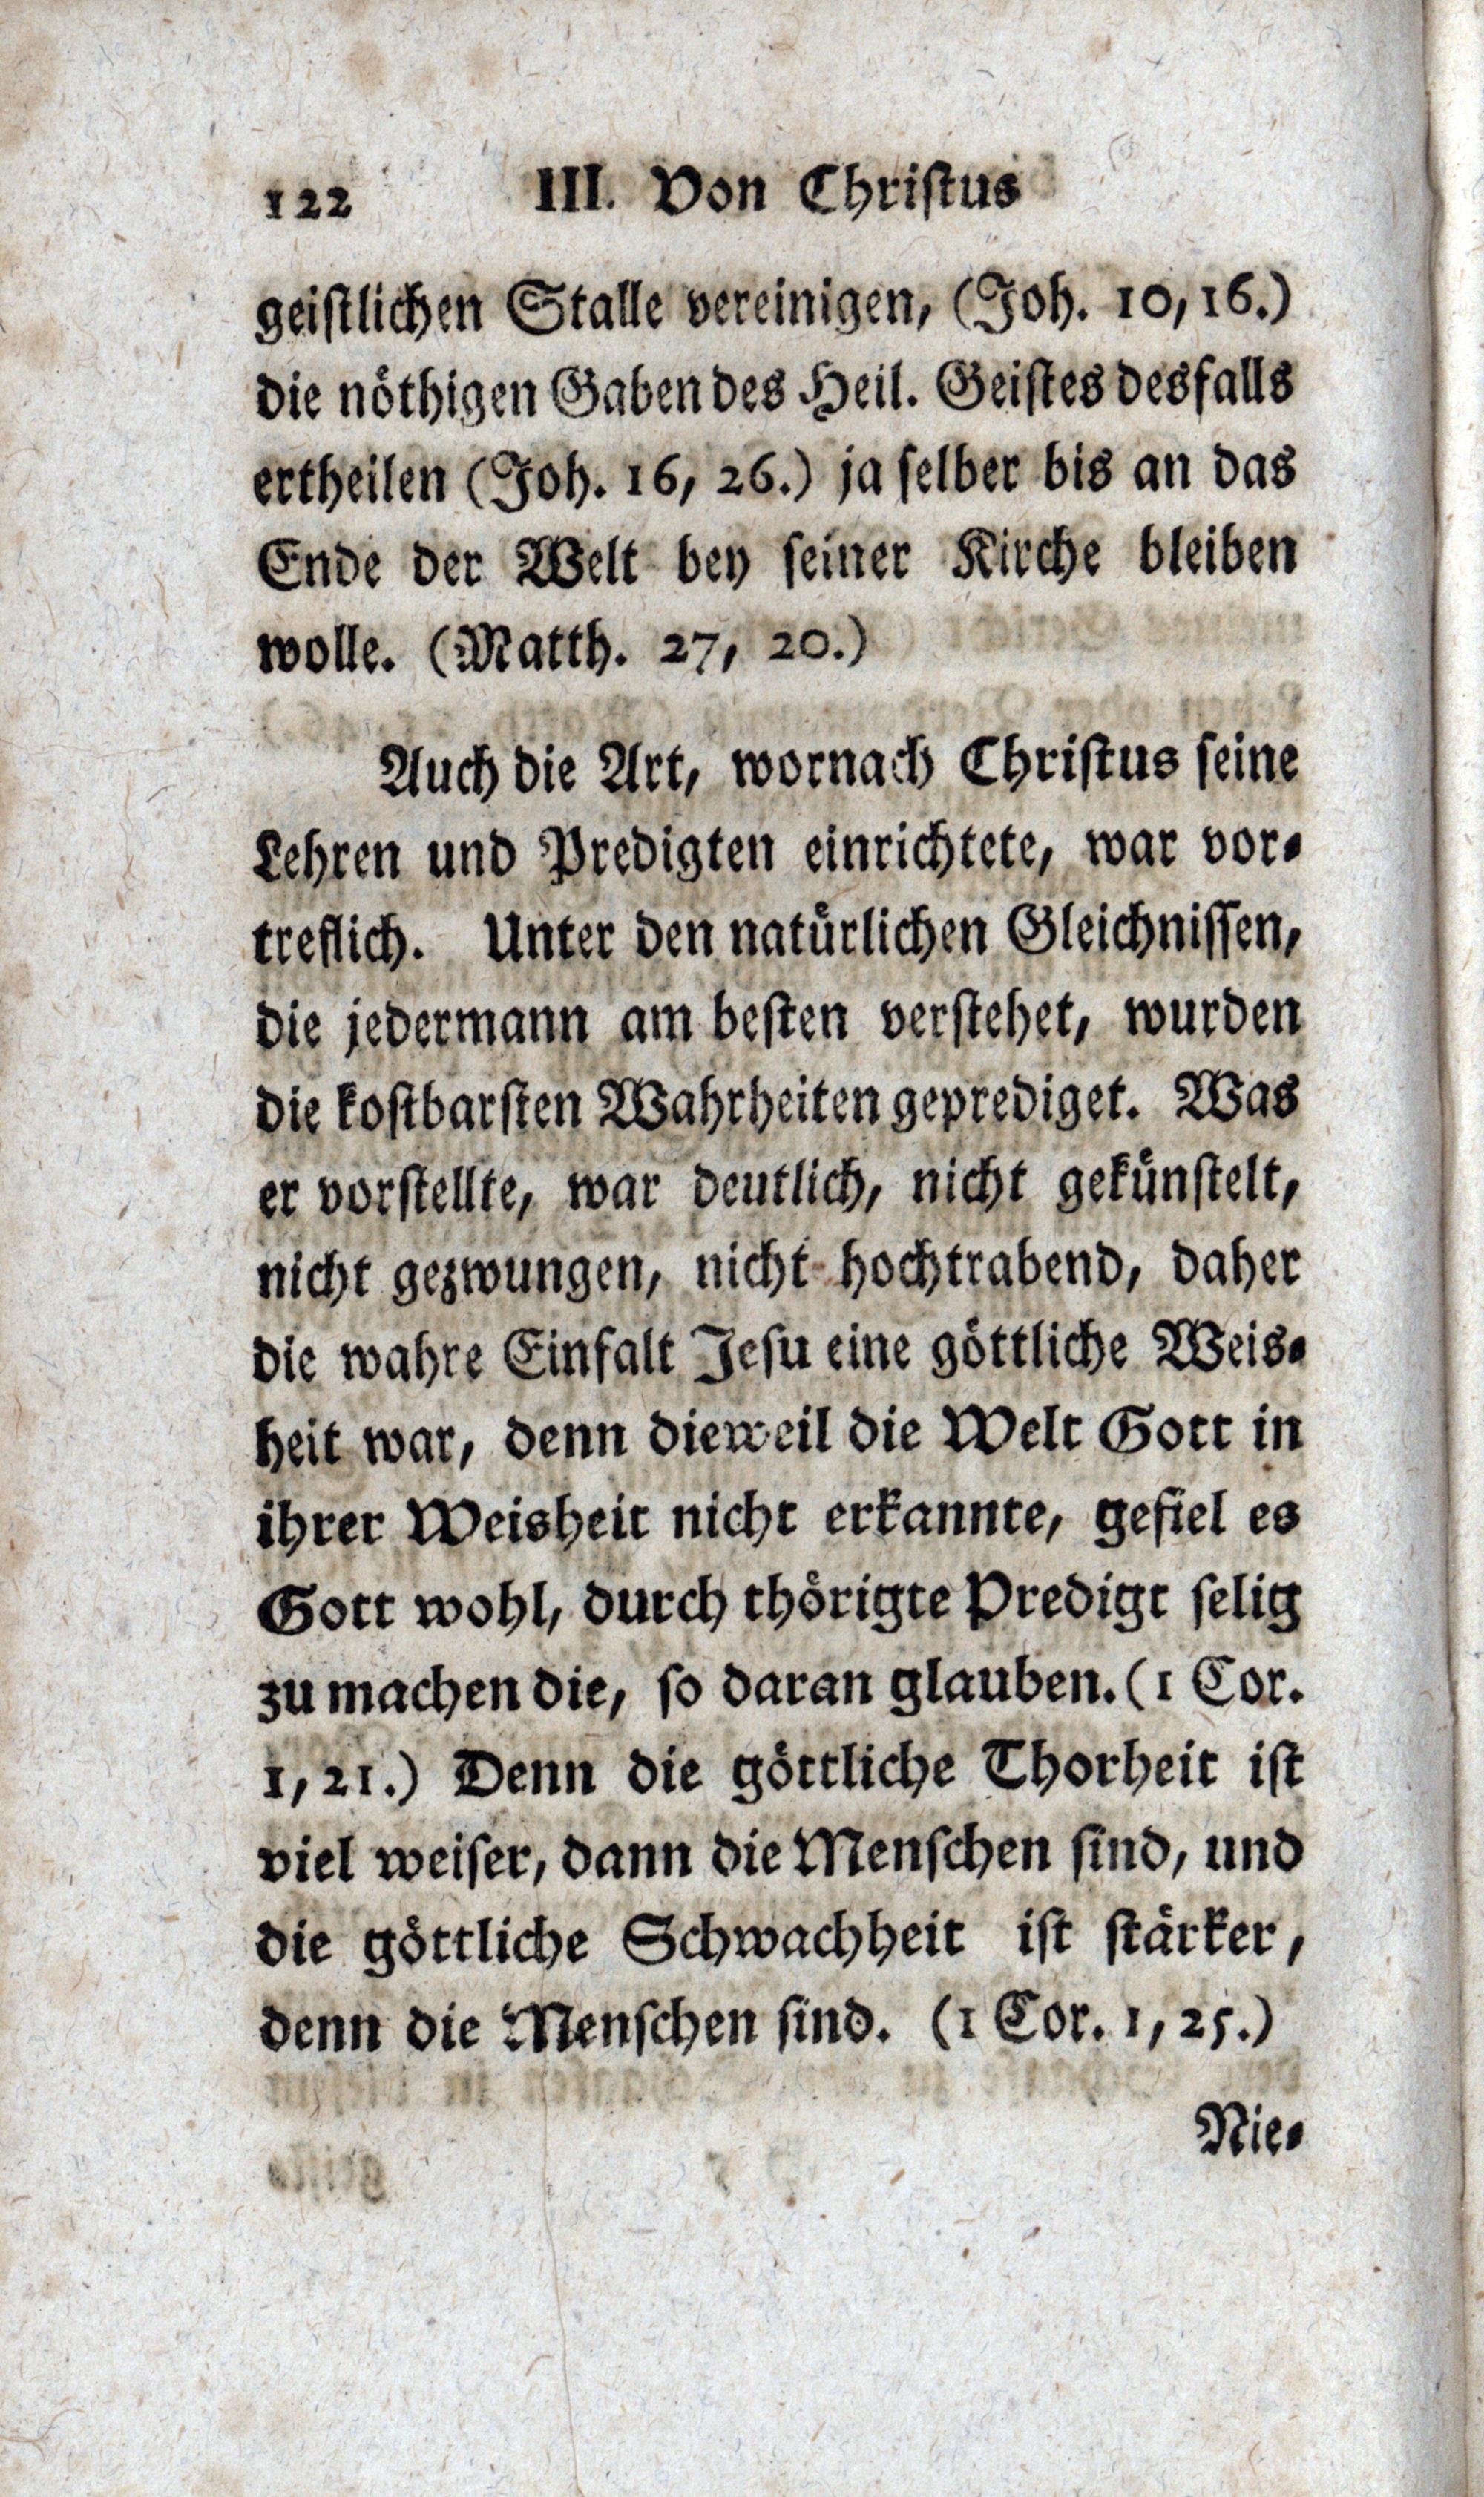 122 III. Von Christus
geistlichen Stalle vereinigen, (Joh. 10, 16.)
die nöthigen Gaben des Heil. Geistes desfalls
ertheilen (Joh. 16, 26.) ja selber bis an das
Ende der Welt bey seiner Kirche bleiben
wolle. (Matth. 27, 20.)
Auch die Art, wornach Christus seine
Lehren und Predigten einrichtete, war vor-
treflich. Unter den natürlichen Gleichnissen,
die jedermann am besten verstehet, wurden
die kostbarsten Wahrheiten geprediget. Was
er vorstellte, war deutlich, nicht gekünstelt,
nicht gezwungen, nicht hochtrabend, daher
die wahre Einfalt Jesu eine göttliche Weis-
heit war, denn dieweil die Welt Gott in
ihrer Weisheit nicht erkannte, gefiel es
Gott wohl, durch thörigte Predigt selig
zu machen die, so daran glauben. (1 Cor.
1, 21.) Denn die göttliche Thorheit ist
viel weiser, dann die Menschen sind, und
die göttliche Schwachheit ist stärker,
denn die Menschen sind. (1 Cor. 1, 25.)
Nie-